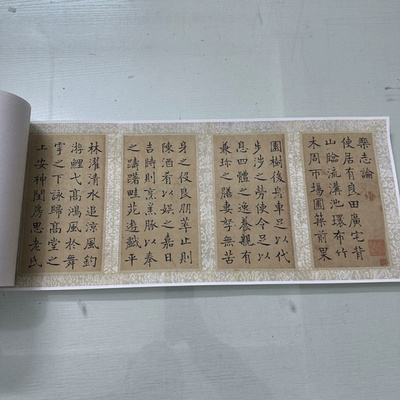 樂志論
使居有良田廣宅背
山臨流溝池環布竹
木周帀場圃築前果
園樹後舟車足以代
步涉之勞使令足以
息四體之役養親有
兼珍之膳妻孥無苦
身之役良朋萃止則
陳酒肴以娛之嘉日
吉時則烹羔豚以奉
之躊躇畦苑遊戲平
林濯清水追涼風釣
游鯉弋高鴻風於舞
雩之下詠歸高堂之
上安神閨房思老氏